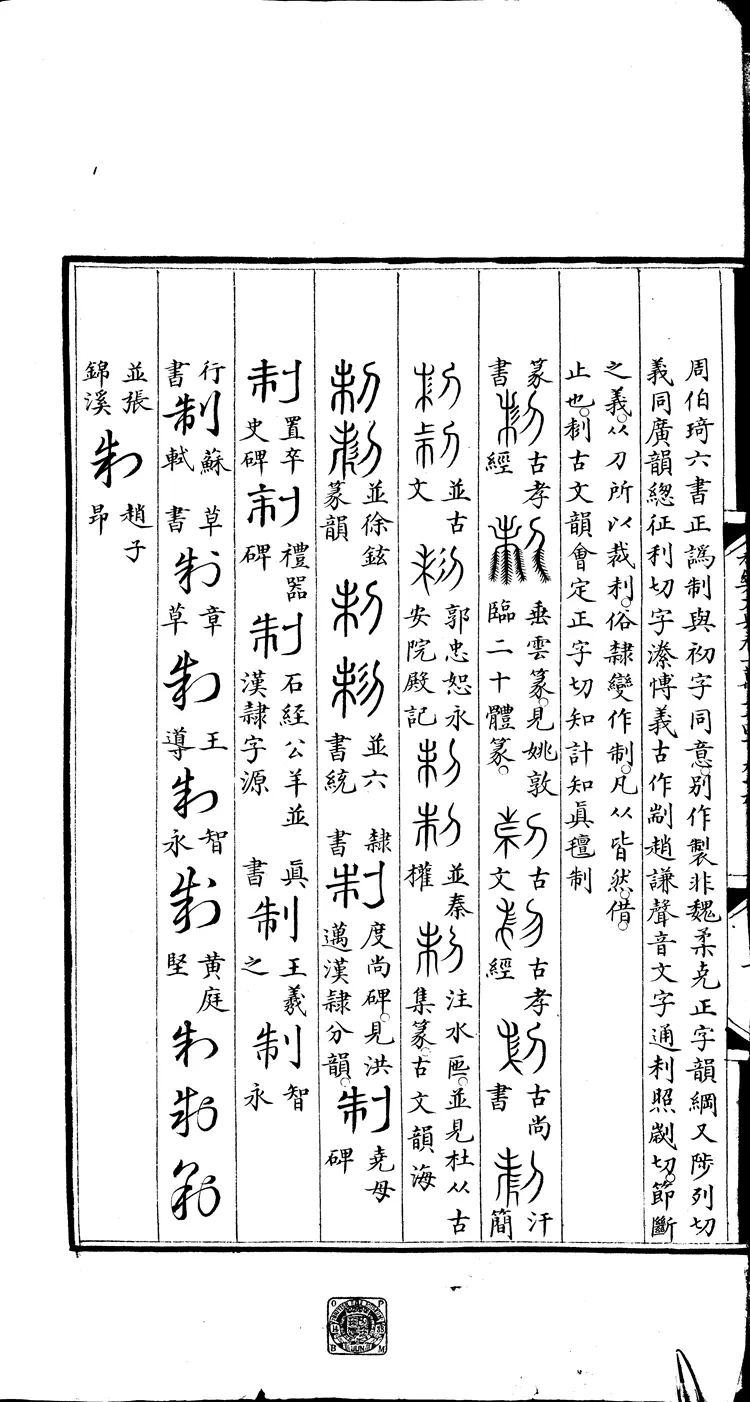 周伯琦六書正譌制與初字同意別作製非魏柔克正字韻綱又陟列切
義同廣韻緫征利切字潫慱義古作㓡趙謙聲音文字通利照歲切節斷
之義从刀所以裁利俗隸變作制凡从皆然借
止也㓡古文韻會定正字切知計知眞䡅制
篆書
古孝經
垂雲篆見姚敦臨二十體篆
古文
古孝經
古尚書
汗簡
並古文
郭忠恕永安院殿記
並秦權
注水匜並見杜从古集篆古文韻海
並徐鉉篆韻
並六書統
隸書
制
度尚碑見洪邁漢隸分韻
制
堯母碑
制
置卒史碑
制
禮器碑
制
石經公羊並漢隸字源
眞書
制
王羲之
制
智永
行書
制
蘇軾
草書
制
章草
制
王導
制
智永
制
黃庭堅
制
並張錦溪
制
趙子昂